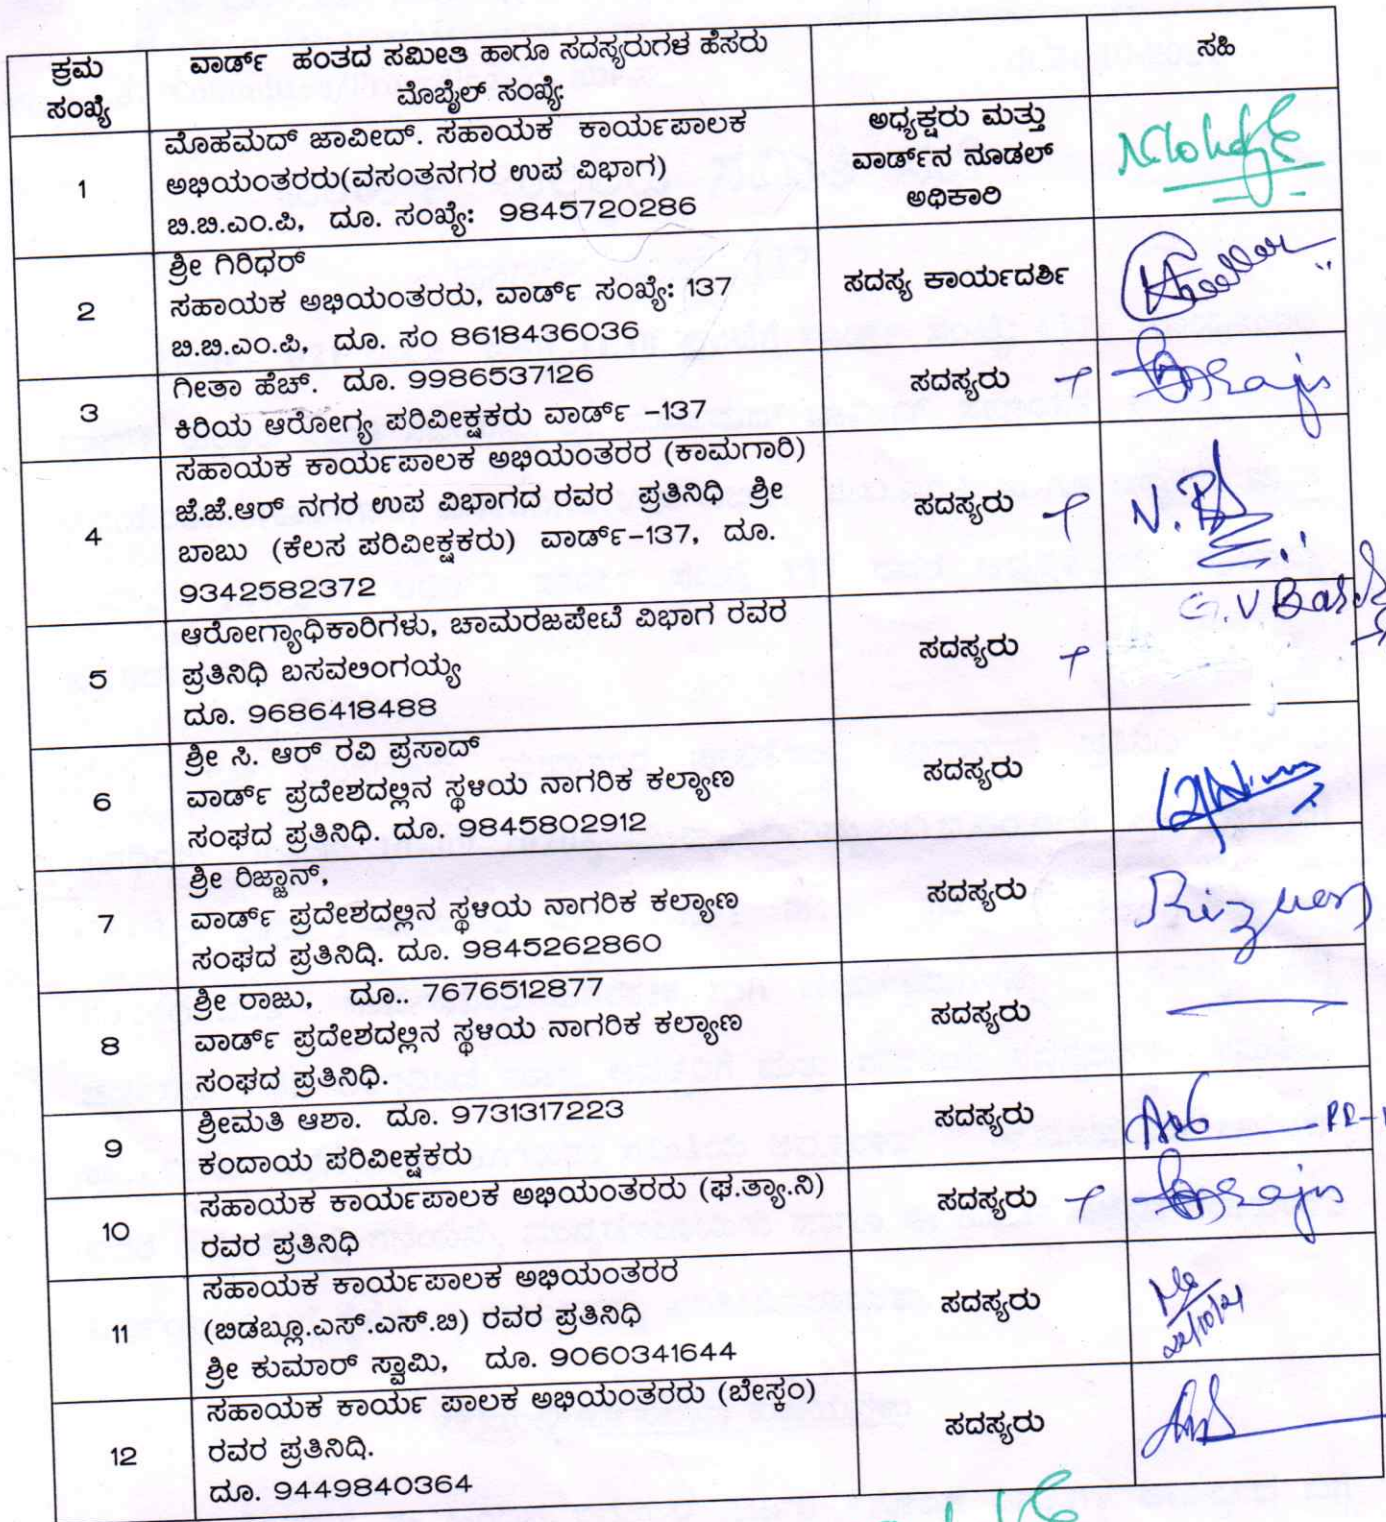 ಕ್ರಮ ಸಂಖ್ಯೆ
ವಾರ್ಡ್ ಹಂತದ ಸಮೀತಿ ಹಾಗೂ ಸದಸ್ಯರುಗಳ ಹೆಸರು
ಮೊಬೈಲ್ ಸಂಖ್ಯೆ
ಸಹಿ
1
ಮೊಹಮದ್ ಜಾವೀದ್. ಸಹಾಯಕ ಕಾರ್ಯಪಾಲಕ
ಅಭಿಯಂತರರು(ವಸಂತನಗರ ಉಪ ವಿಭಾಗ)
ಬಿ.ಬಿ.ಎಂ.ಪಿ, ದೂ. ಸಂಖ್ಯೆ: 9845720286
ಅಧ್ಯಕ್ಷರು ಮತ್ತು
ವಾರ್ಡ್‌ನ ನೂಡಲ್
ಅಧಿಕಾರಿ
2
ಶ್ರೀ ಗಿರಿಧರ್
ಸಹಾಯಕ ಅಭಿಯಂತರರು, ವಾರ್ಡ್ ಸಂಖ್ಯೆ: 137
ಬಿ.ಬಿ.ಎಂ.ಪಿ, ದೂ. ಸಂ 8618436036
ಸದಸ್ಯ ಕಾರ್ಯದರ್ಶಿ
3
ಗೀತಾ ಹೆಚ್. ದೂ. 9986537126
ಕಿರಿಯ ಆರೋಗ್ಯ ಪರಿವೀಕ್ಷಕರು ವಾರ್ಡ್ –137
ಸದಸ್ಯರು
4
ಸಹಾಯಕ ಕಾರ್ಯಪಾಲಕ ಅಭಿಯಂತರರ (ಕಾಮಗಾರಿ)
ಜೆ.ಜೆ.ಆರ್ ನಗರ ಉಪ ವಿಭಾಗದ ರವರ ಪ್ರತಿನಿಧಿ ಶ್ರೀ
ಬಾಬು (ಕೆಲಸ ಪರಿವೀಕ್ಷಕರು) ವಾರ್ಡ್–137, ದೂ.
9342582372
ಸದಸ್ಯರು
5
ಆರೋಗ್ಯಾಧಿಕಾರಿಗಳು, ಚಾಮರಜಪೇಟೆ ವಿಭಾಗ ರವರ
ಪ್ರತಿನಿಧಿ ಬಸವಲಿಂಗಯ್ಯ
ದೂ. 9686418488
ಸದಸ್ಯರು
6
ಶ್ರೀ ಸಿ. ಆರ್ ರವಿ ಪ್ರಸಾದ್
ವಾರ್ಡ್ ಪ್ರದೇಶದಲ್ಲಿನ ಸ್ಥಳಿಯ ನಾಗರಿಕ ಕಲ್ಯಾಣ
ಸಂಘದ ಪ್ರತಿನಿಧಿ. ದೂ. 9845802912
ಸದಸ್ಯರು
7
ಶ್ರೀ ರಿಜ್ವಾನ್,
ವಾರ್ಡ್ ಪ್ರದೇಶದಲ್ಲಿನ ಸ್ಥಳಿಯ ನಾಗರಿಕ ಕಲ್ಯಾಣ
ಸಂಘದ ಪ್ರತಿನಿಧಿ. ದೂ. 9845262860
ಸದಸ್ಯರು
8
ಶ್ರೀ ರಾಜು, ದೂ.. 7676512877
ವಾರ್ಡ್ ಪ್ರದೇಶದಲ್ಲಿನ ಸ್ಥಳಿಯ ನಾಗರಿಕ ಕಲ್ಯಾಣ
ಸಂಘದ ಪ್ರತಿನಿಧಿ.
ಸದಸ್ಯರು
9
ಶ್ರೀಮತಿ ಆಶಾ. ದೂ. 9731317223
ಕಂದಾಯ ಪರಿವೀಕ್ಷಕರು
ಸದಸ್ಯರು
10
ಸಹಾಯಕ ಕಾರ್ಯಪಾಲಕ ಅಭಿಯಂತರರು (ಘ.ತ್ಯಾ.ನಿ)
ರವರ ಪ್ರತಿನಿಧಿ
ಸದಸ್ಯರು
11
ಸಹಾಯಕ ಕಾರ್ಯಪಾಲಕ ಅಭಿಯಂತರರ
(ಬಿಡಬ್ಲೂ.ಎಸ್.ಎಸ್.ಬಿ) ರವರ ಪ್ರತಿನಿಧಿ
ಶ್ರೀ ಕುಮಾರ್ ಸ್ವಾಮಿ, ದೂ. 9060341644
ಸದಸ್ಯರು
22/10/21
12
ಸಹಾಯಕ ಕಾರ್ಯ ಪಾಲಕ ಅಭಿಯಂತರರು (ಬೇಸ್ಕಂ)
ರವರ ಪ್ರತಿನಿಧಿ.
ದೂ. 9449840364
ಸದಸ್ಯರು